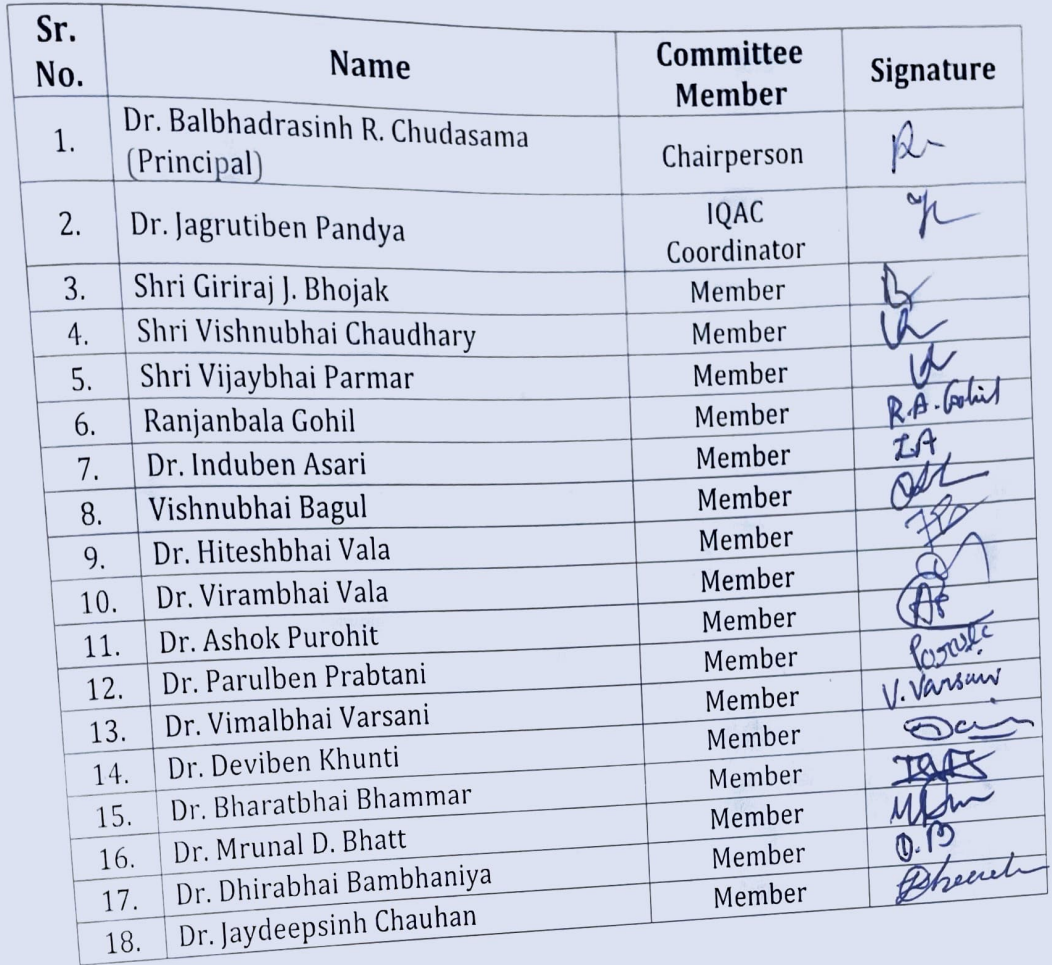 Sr. No. Name Committee Member Signature
1. Dr. Balbhadrasinh R. Chudasama (Principal) Chairperson
2. Dr. Jagrutiben Pandya IQAC Coordinator
3. Shri Giriraj J. Bhojak Member
4. Shri Vishnubhai Chaudhary Member
5. Shri Vijaybhai Parmar Member
6. Ranjanbala Gohil Member R.A. Gohil
7. Dr. Induben Asari Member I.A
8. Vishnubhai Bagul Member
9. Dr. Hiteshbhai Vala Member
10. Dr. Virambhai Vala Member
11. Dr. Ashok Purohit Member AP
12. Dr. Parulben Prabtani Member
13. Dr. Vimalbhai Varsani Member V. Varsani
14. Dr. Deviben Khunti Member
15. Dr. Bharatbhai Bhammar Member
16. Dr. Mrunal D. Bhatt Member
17. Dr. Dhirabhai Bambhaniya Member D.B
18. Dr. Jaydeepsinh Chauhan Member